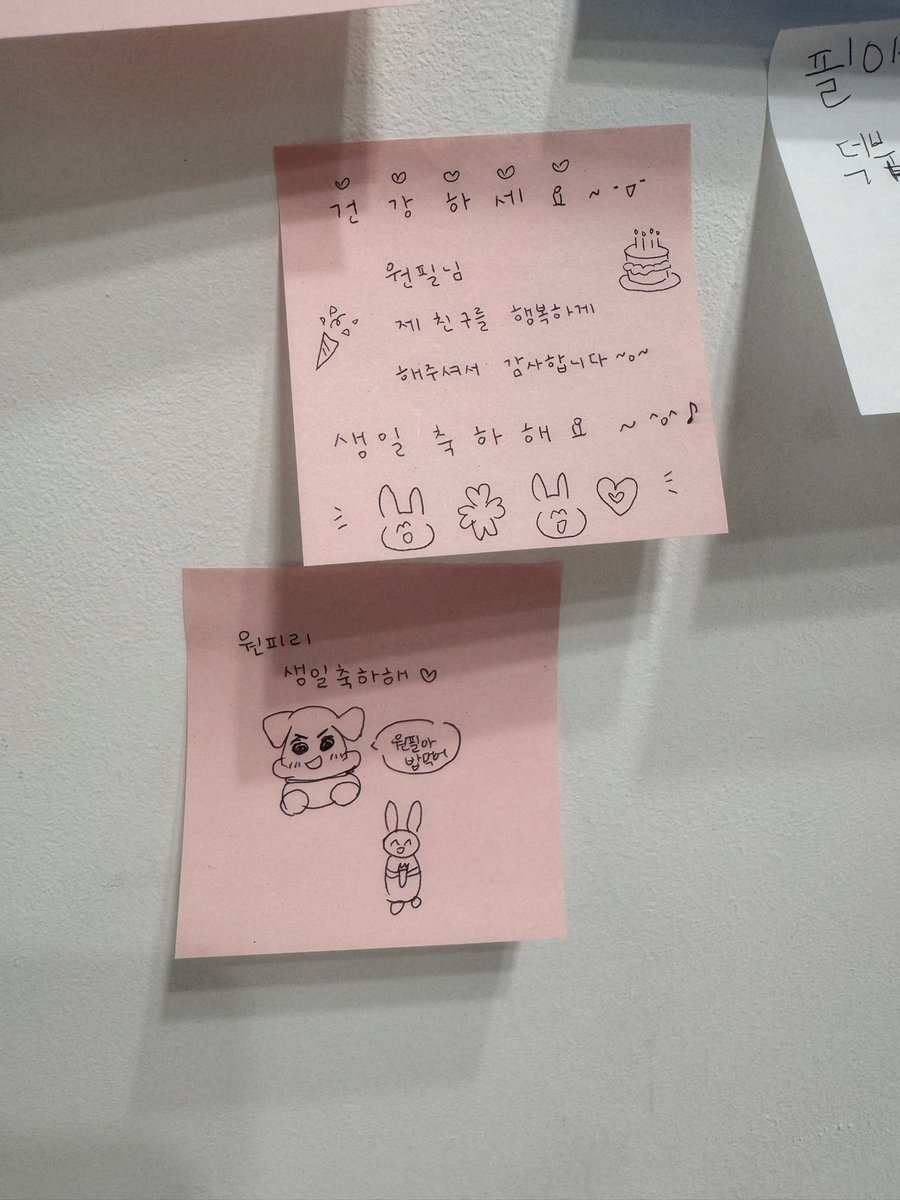 건강하세요~
원필님
제 친구를 행복하게
해주셔서 감사합니다~o~
생일 축하해요 ~ ^o^ ♪
원피리
생일축하해 ♡
원필아
밥먹어
필아
덕분